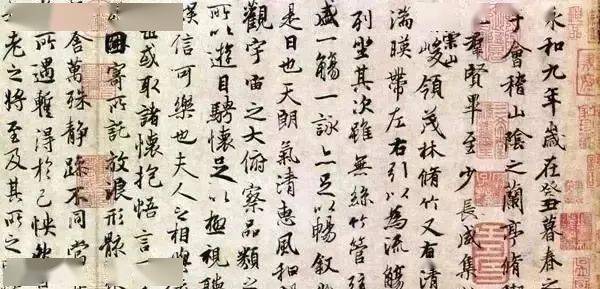 永和九年歲在癸丑暮春之
于會稽山陰之蘭亭脩
羣賢畢至少長咸集
崇山
峻領茂林脩竹又有清
湍暎帶左右引以為流觴
列坐其次雖無絲竹管
盛一觴一詠亦足以暢敘
是日也天朗氣清惠風和
觀宇宙之大俯察品類之
所以遊目騁懷足以極視聽
信可樂也夫人之相與
或取諸懷抱悟言一
因寄所託放浪形骸
舍萬殊靜躁不同當
所遇蹔得於己怏然
老之將至及其所之